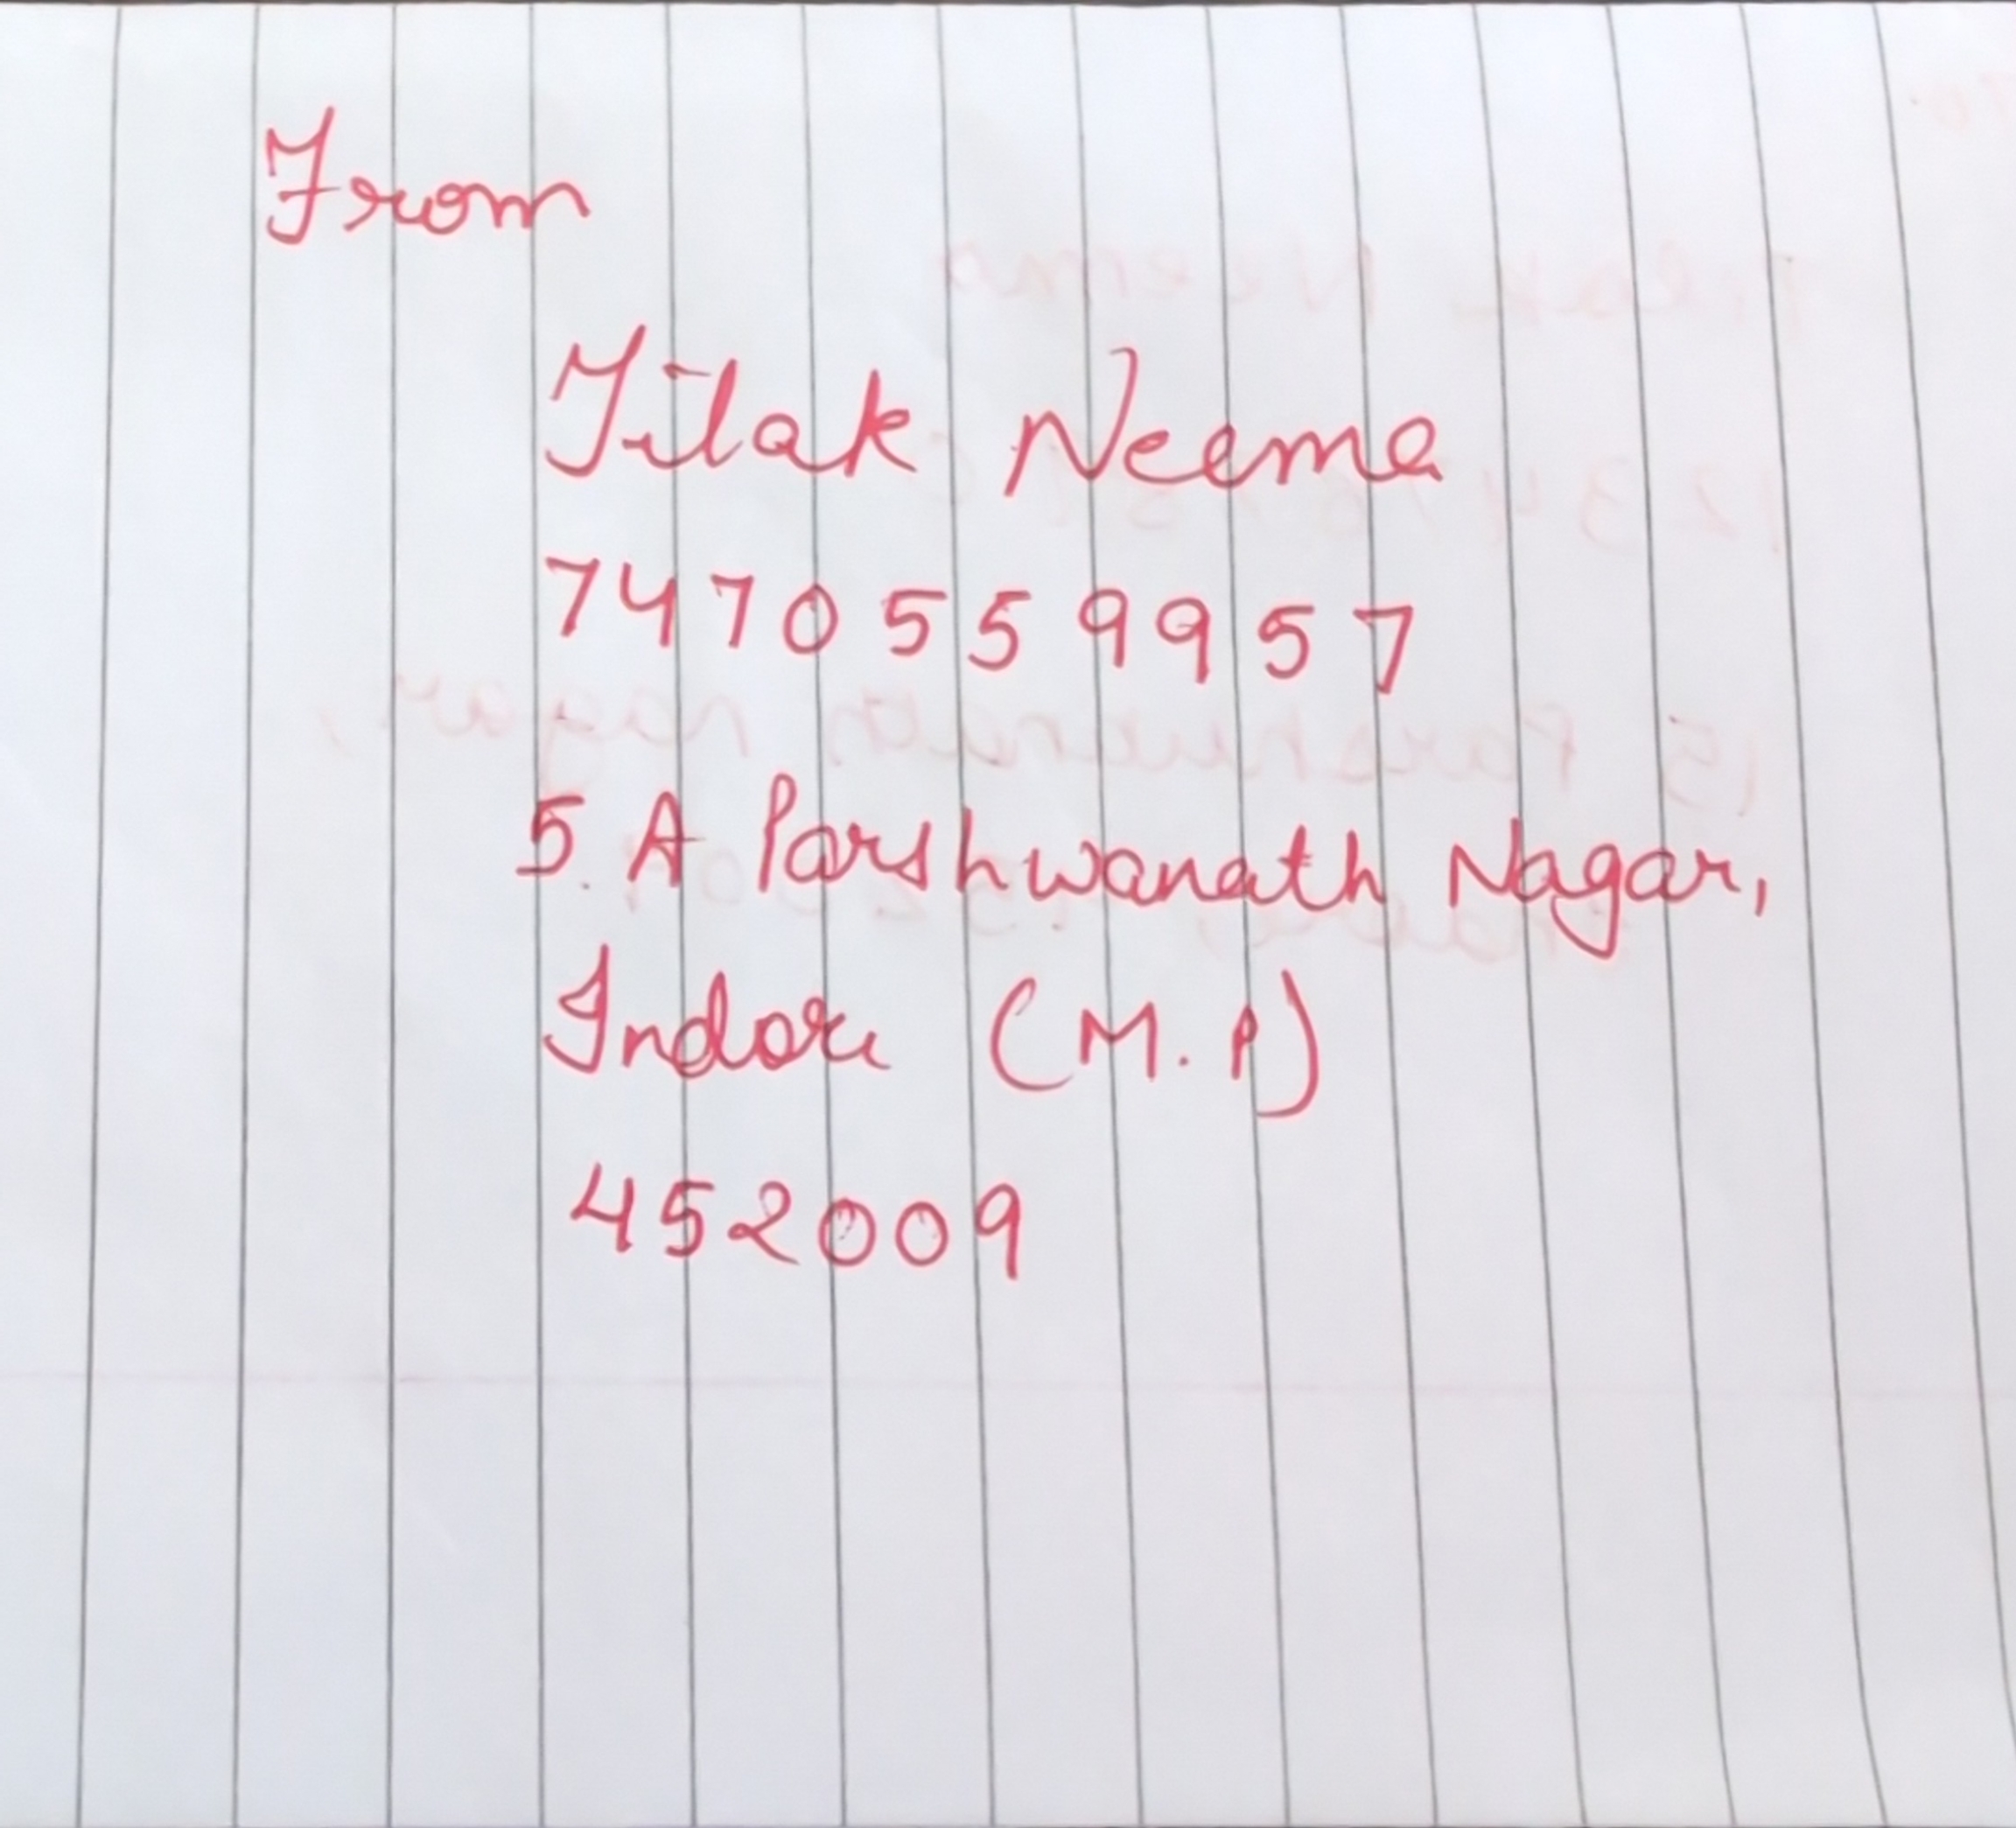 From
Tilak Neema
7470559957
5. A Parshwanath Nagar,
Indore (M.P)
452009